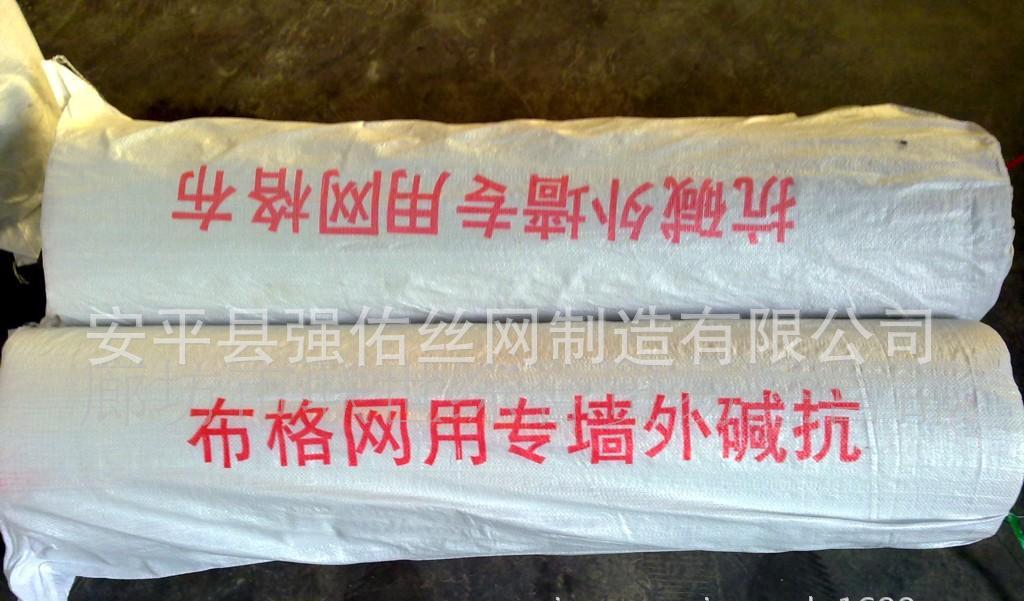 抗碱外墙专用网格布
安平县强佑丝网制造有限公司
布格网用专墙外碱抗